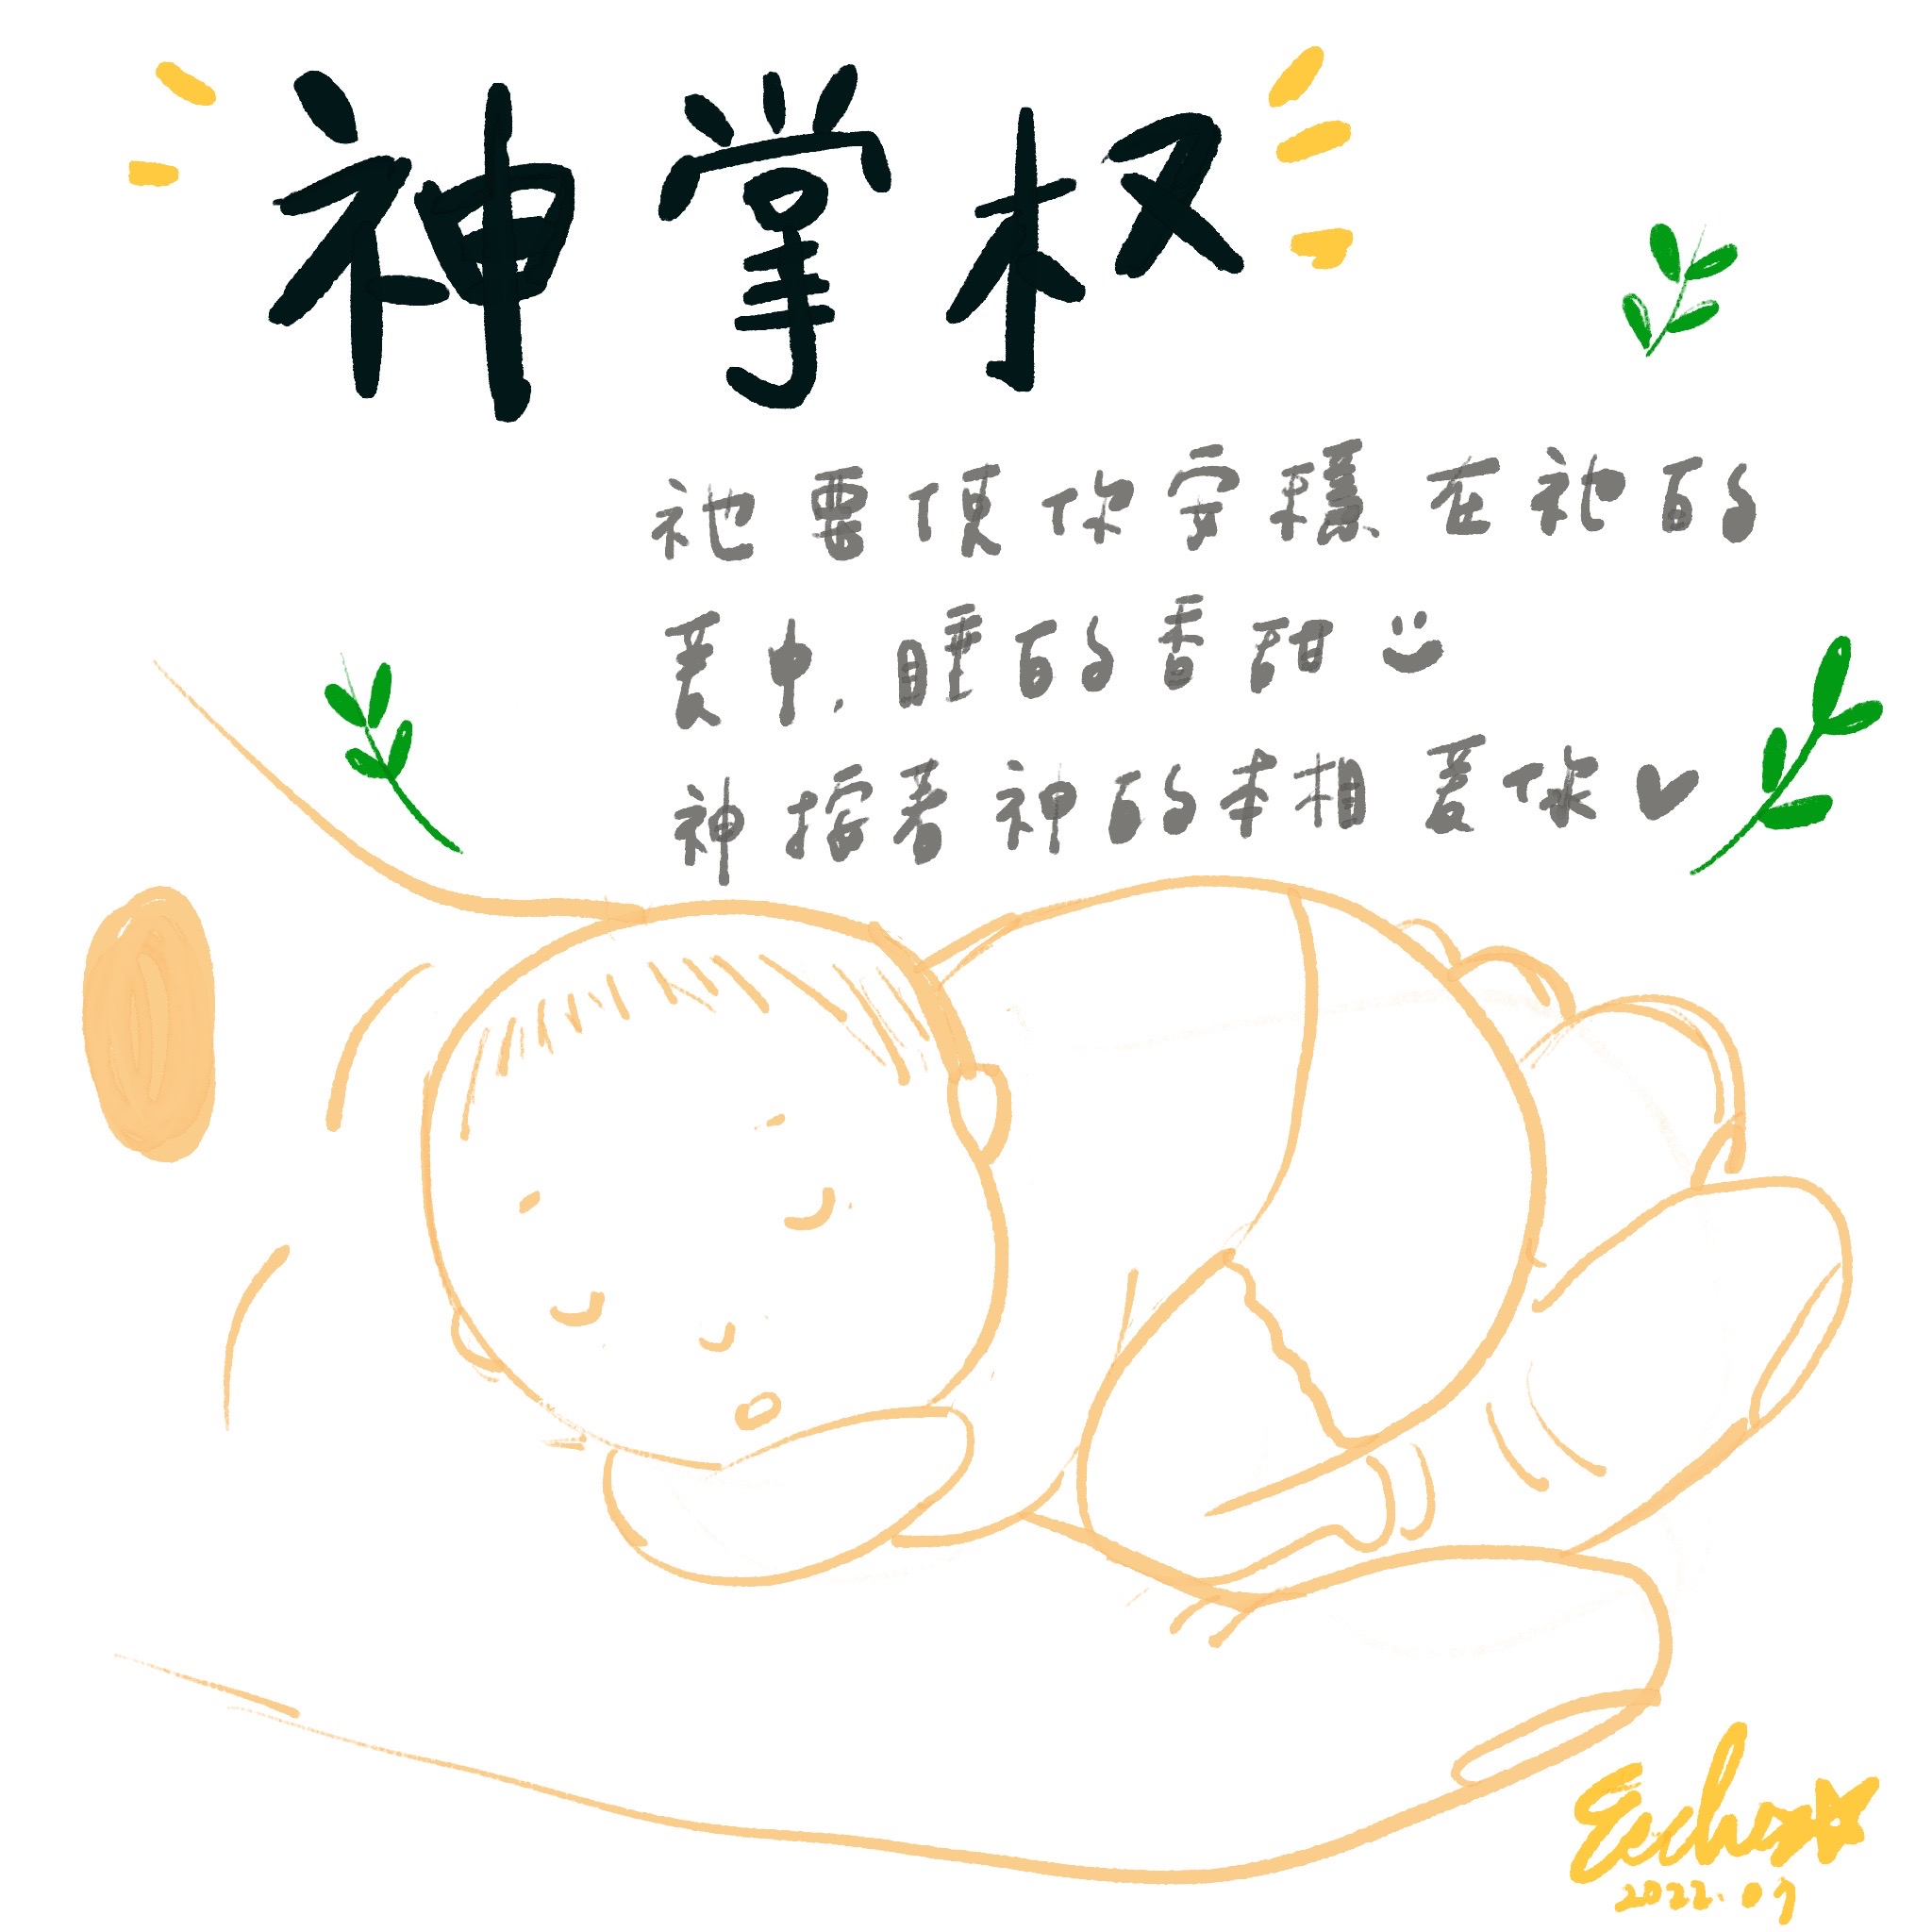 神掌权
祂要使你安穩在祂的
爱中,睡的香甜
神按着神的本相爱你
Echo
2022.07